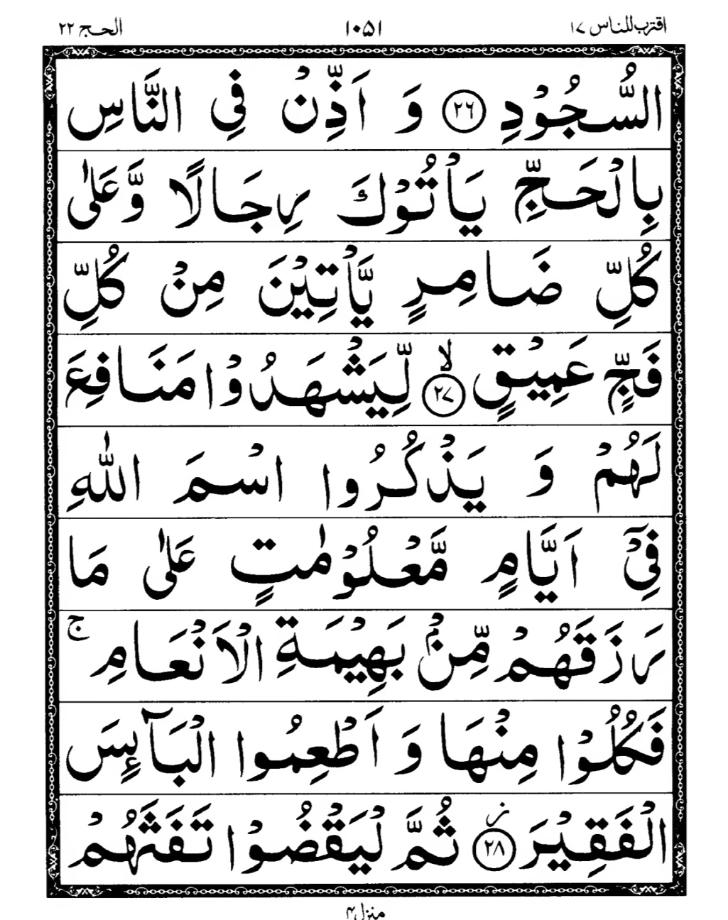 اقترب للناس ١٧ ١٠٥١ الحج ٢٢
السُّجُوْدِ ﴿٢٦﴾ وَ اَذِّنْ فِی النَّاسِ
بِالْحَجِّ یَاْتُوْكَ رِجَالًا وَّعَلٰی
كُلِّ ضَامِرٍ یَّاْتِیْنَ مِنْ كُلِّ
فَجٍّ عَمِیْقٍ ﴿٢٧﴾ۙ لِّیَشْهَدُوْا مَنَافِعَ
لَهُمْ وَ یَذْكُرُوا اسْمَ اللّٰهِ
فِیْۤ اَیَّامٍ مَّعْلُوْمٰتٍ عَلٰی مَا
رَزَقَهُمْ مِّنْۢ بَهِیْمَةِ الْاَنْعَامِ ۚ
فَكُلُوْا مِنْهَا وَ اَطْعِمُوا الْبَآىِٕسَ
الْفَقِیْرَ ﴿٢٨﴾ؗ ثُمَّ لْیَقْضُوْا تَفَثَهُمْ
منزل ۴